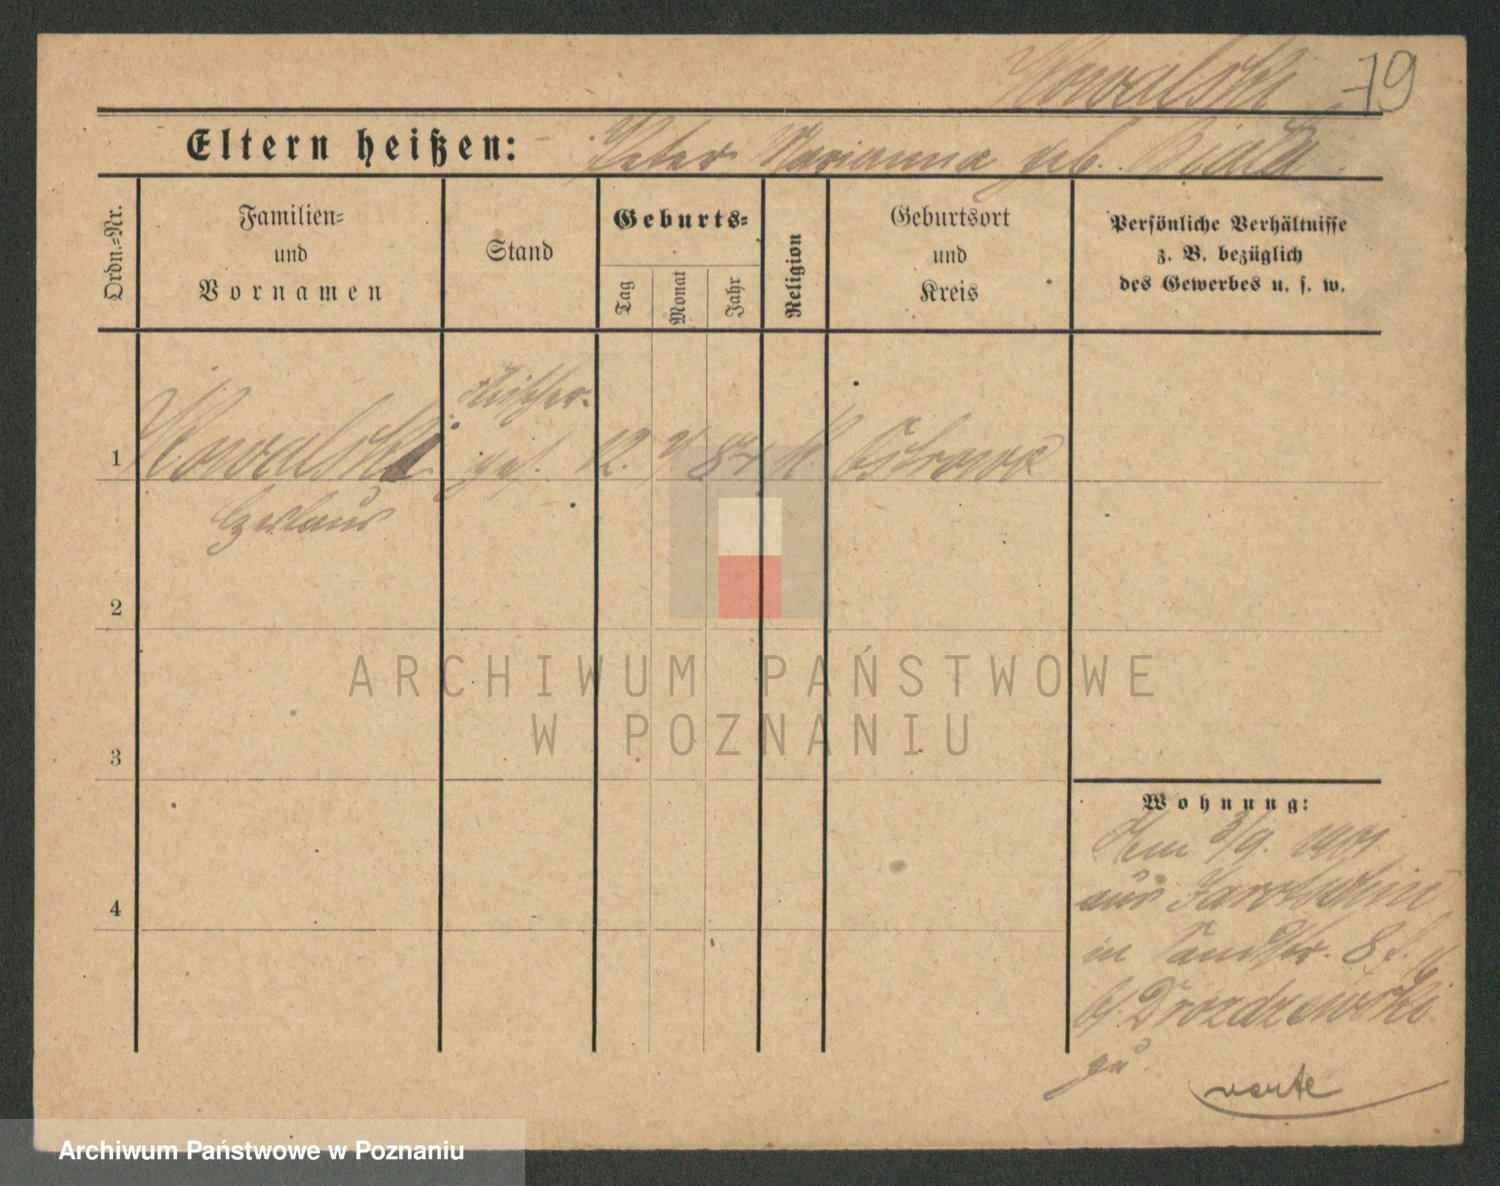 Kowalski 79
Eltern heißen: Peter Marianna geb. Biała
Ordn.=Nr.
Familien=
und
Vornamen
Stand
Geburts=
Tag
Monat
Jahr
Religion
Geburtsort
und
Kreis
Persönliche Verhältnisse
z. B. bezüglich
des Gewerbes u. s. w.
Tischler.
1 Kowalski ges. 12. 7 84 k. Ostrowo
Czeslaus
2
3
4
Wohnung:
Am 3/9. 1901
aus Jarotschin
in Sandstr. 8
b/ Drozdzewski
zu.
verte
ARCHIWUM PAŃSTWOWE
W POZNANIU
Archiwum Państwowe w Poznaniu